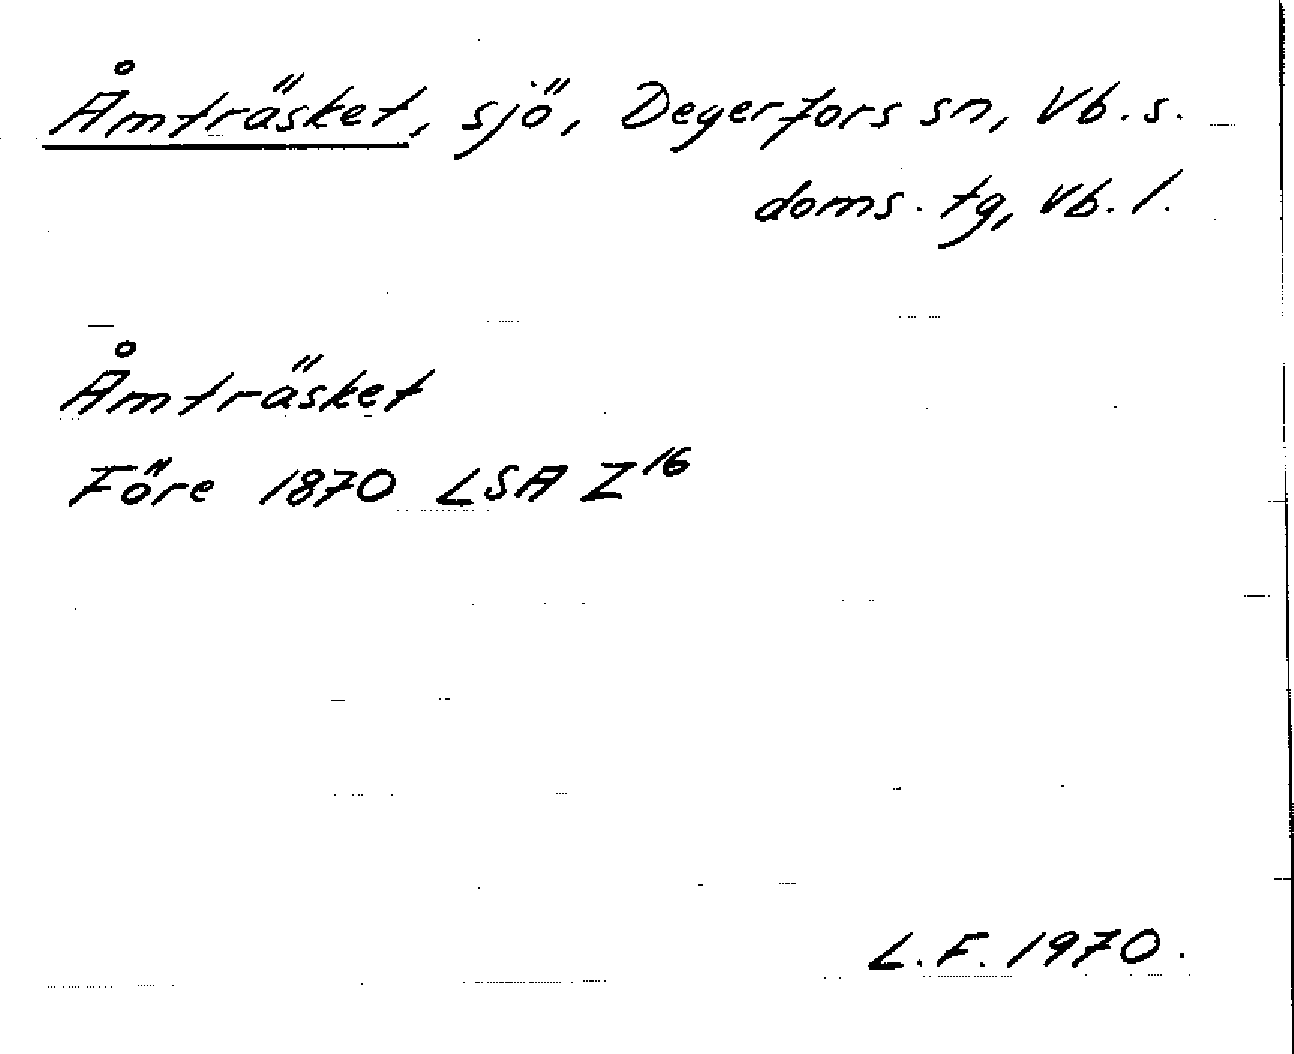 Åmträsket, sjö, Degerfors sn, Vb. s.
doms. tg, Vb. l.
Åmträsket
Före 1870 LSA Z¹⁶
L. F. 1970.